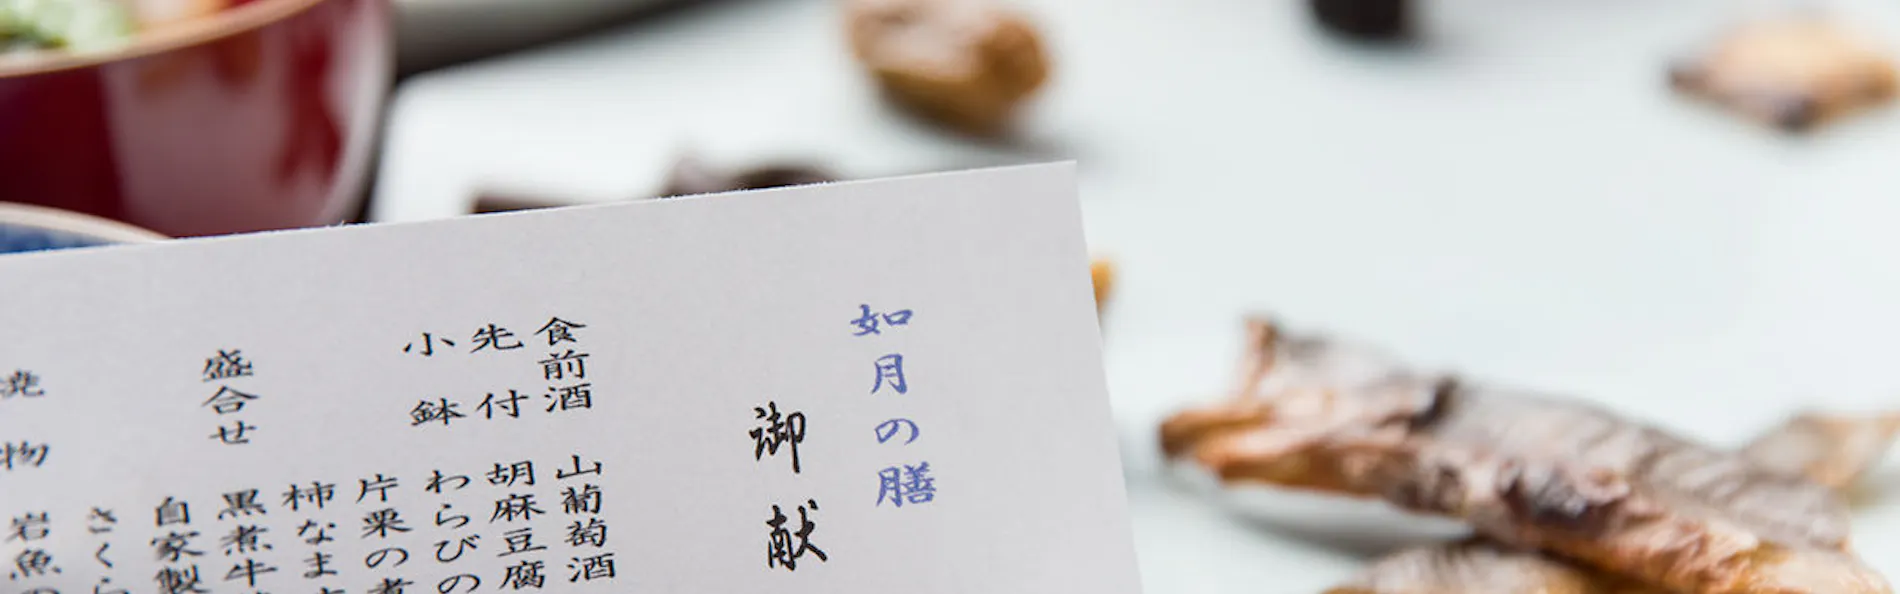 如月の膳
御献
食前酒 山葡萄酒
先付 胡麻豆腐
小鉢 わらびの
片栗の煮
柿なま
盛合せ 黒煮牛
自家製
さくら
焼物 岩魚の